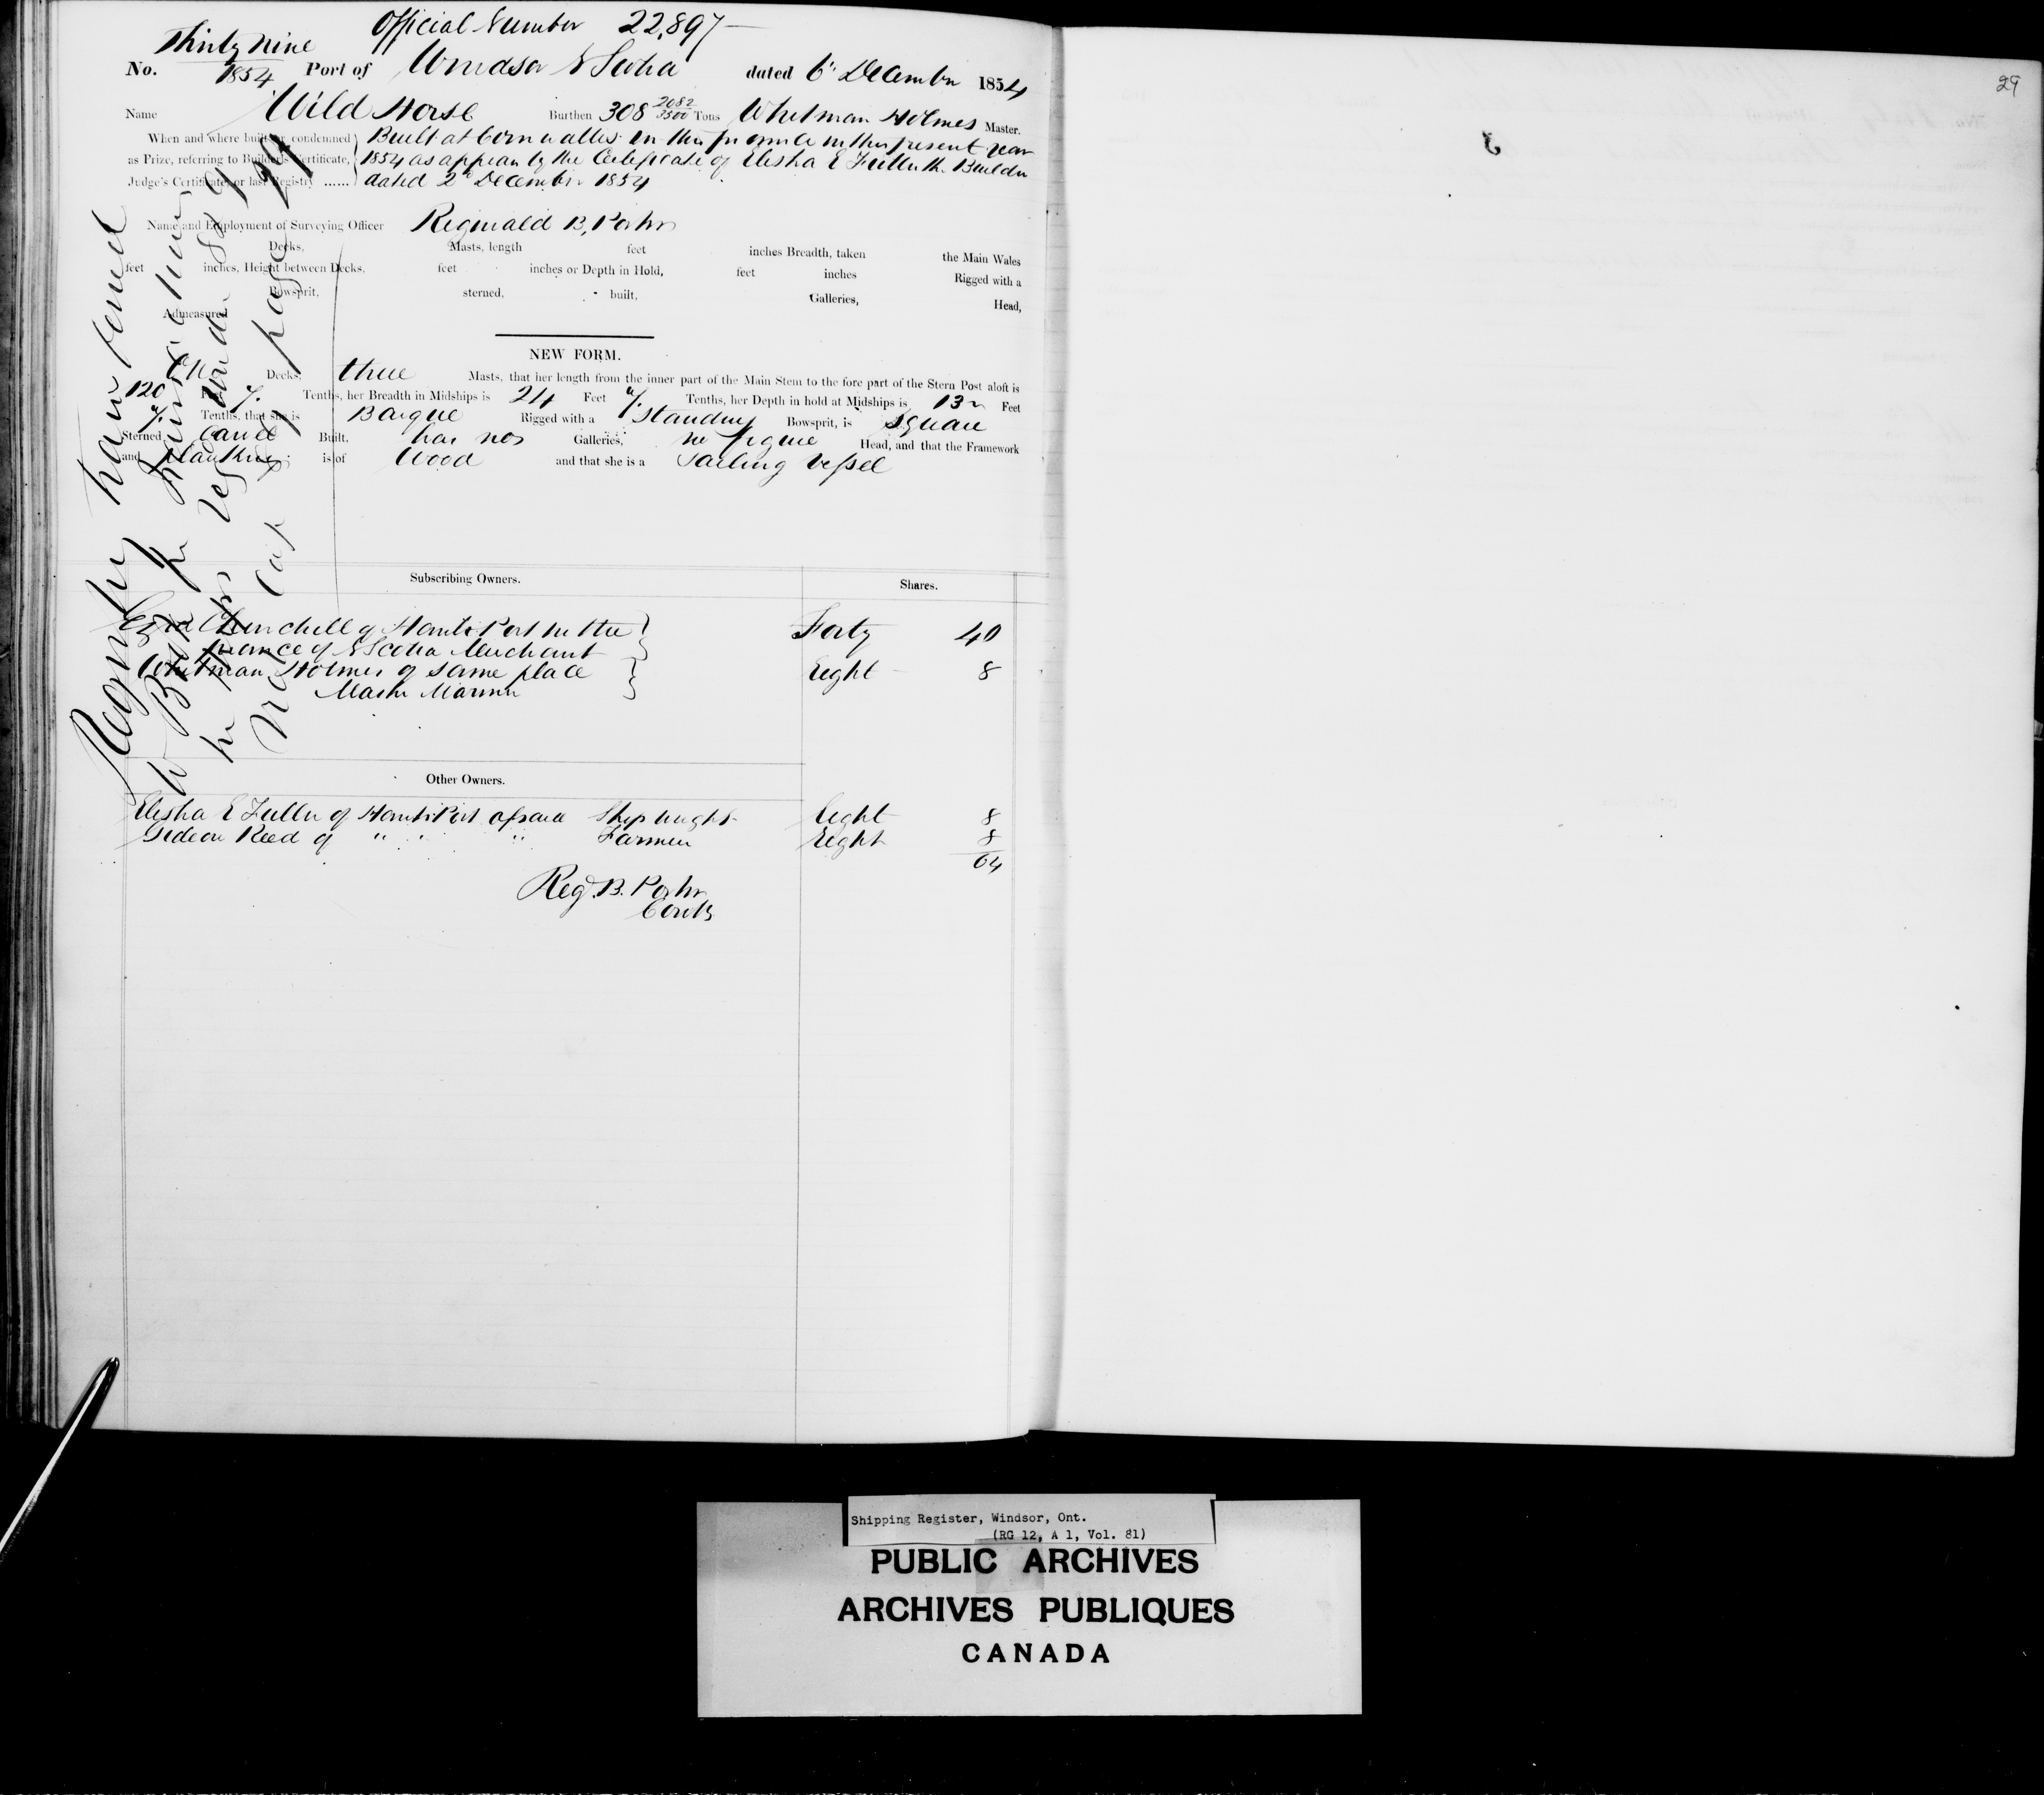 Official Number 22,897
Thirty Nine
No. 1854 Port of Windsor N Scotia dated 6" December 1854
Name Wild Horse Burthen 308 2082/3500 Tons Whitman Holmes Master.
When and where built or condemned as Prize, referring to Builder's Certificate, Judge's Certificate, or last Registry ......
Built at Cornwallis in this province in this present year
1854 as appears by the Certificate of Elisha E Fuller the Builder
dated 2d December 1854
Name and Employment of Surveying Officer Reginald B. Porter
Decks, Masts, length feet inches Breadth, taken the Main Wales
feet inches, Height between Decks, feet inches or Depth in Hold, feet inches Rigged with a
Bowsprit, sterned, built, Galleries, Head,
Admeasured
NEW FORM.
One Decks, three Masts, that her length from the inner part of the Main Stem to the fore part of the Stern Post aloft is
120 Feet Tenths, her Breadth in Midships is 24 Feet Tenths, her Depth in hold at Midships is 13 Feet
Tenths, that she is Barque Rigged with a Standing Bowsprit, is square
Sterned, Carvel Built, has no Galleries, no figure Head, and that the Framework
and planking is of Wood and that she is a Sailing Vessel
Subscribing Owners. Shares.
Ezra Churchill of Hantsport in the Forty 40
province of N Scotia Merchant
Whitman Holmes of same place Eight 8
Master Mariner
Other Owners.
Elisha E Fuller of Hantsport aforesaid Shipwright Eight 8
Gideon Reed of " " " Farmer Eight 8
64
Reg. B. Porter
Contr
Registry transferred
to
page 99
29
Shipping Register, Windsor, Ont.
(RG 12, A 1, Vol. 81)
PUBLIC ARCHIVES
ARCHIVES PUBLIQUES
CANADA